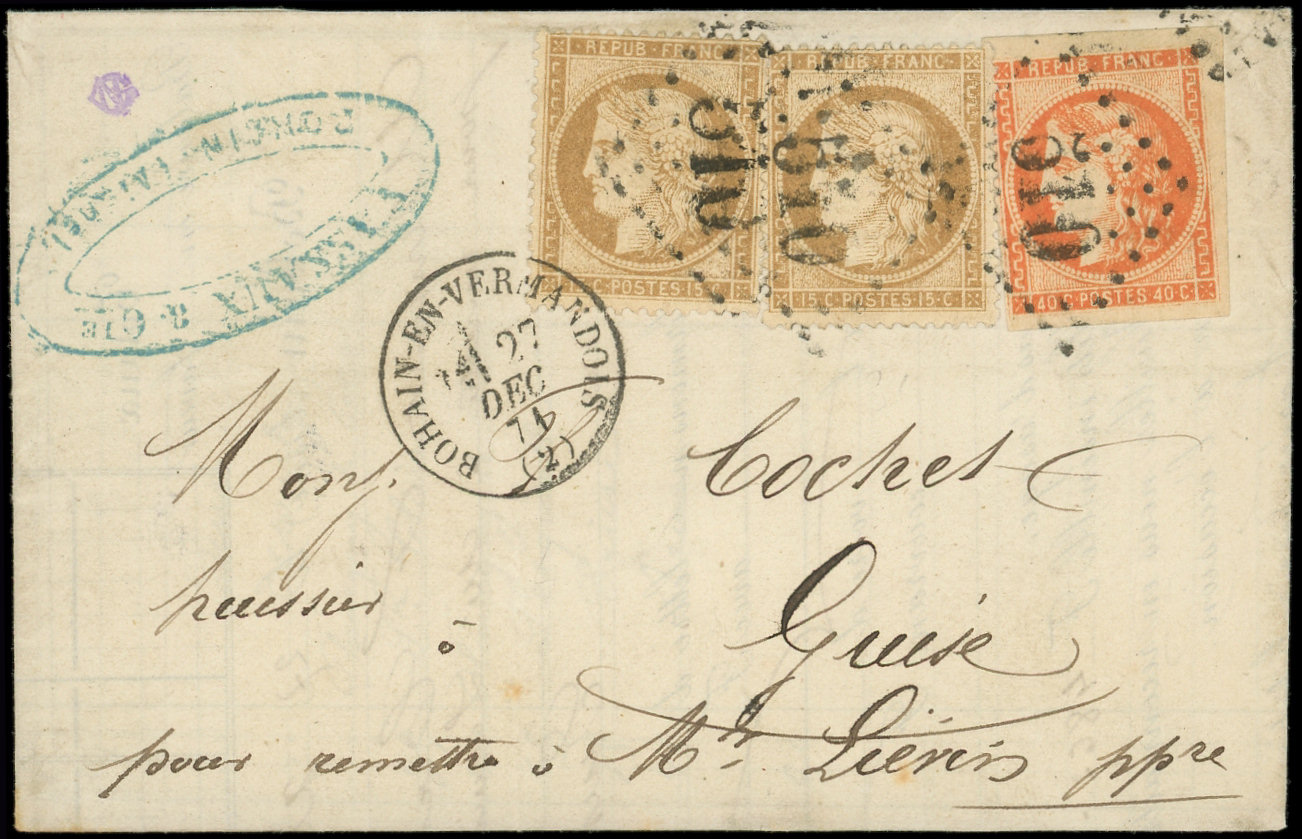 REPUB. FRANC.
15 C. POSTES 15 C.
REPUB. FRANC.
15 C. POSTES 15 C.
REPUB. FRANC.
20
40 C. POSTES 40 C.
& CIE
BOHAIN-EN-VERMANDOIS
27
DEC
71
(2)
Mons. Cochet
huissier
à Guise
pour remettre à Mr. Liévin ppre